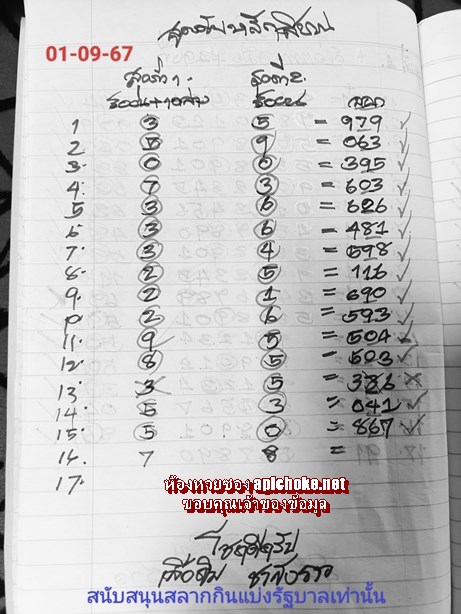 01-09-67
สูตรที่ 1. สูตรที่ 2.
1 3 5 = 979 ✓
2 5 9 = 063 ✓
3. 0 0 = 395 ✓
4. 7 3 = 603 ✓
5 3 6 = 626 ✓
6 3 6 = 481 ✓
7. 3 4 = 598 ✓
8. 2 5 = 116 ✓
9. 2 1 = 690 ✓
10 2 6 = 593 ✓
11. 9 5 = 504 ✓
12. 8 5 = 503 ✓
13. 3 5 = 386 ×
14. 5 3 = 041 ✓
15. 5 0 = 867 ✓
16. 7 8 =
17.
ห้องหวยซอง apichoke.net
ขอบคุณเจ้าของข้อมูล
โชคดีครับ
สนับสนุนสลากกินแบ่งรัฐบาลเท่านั้น